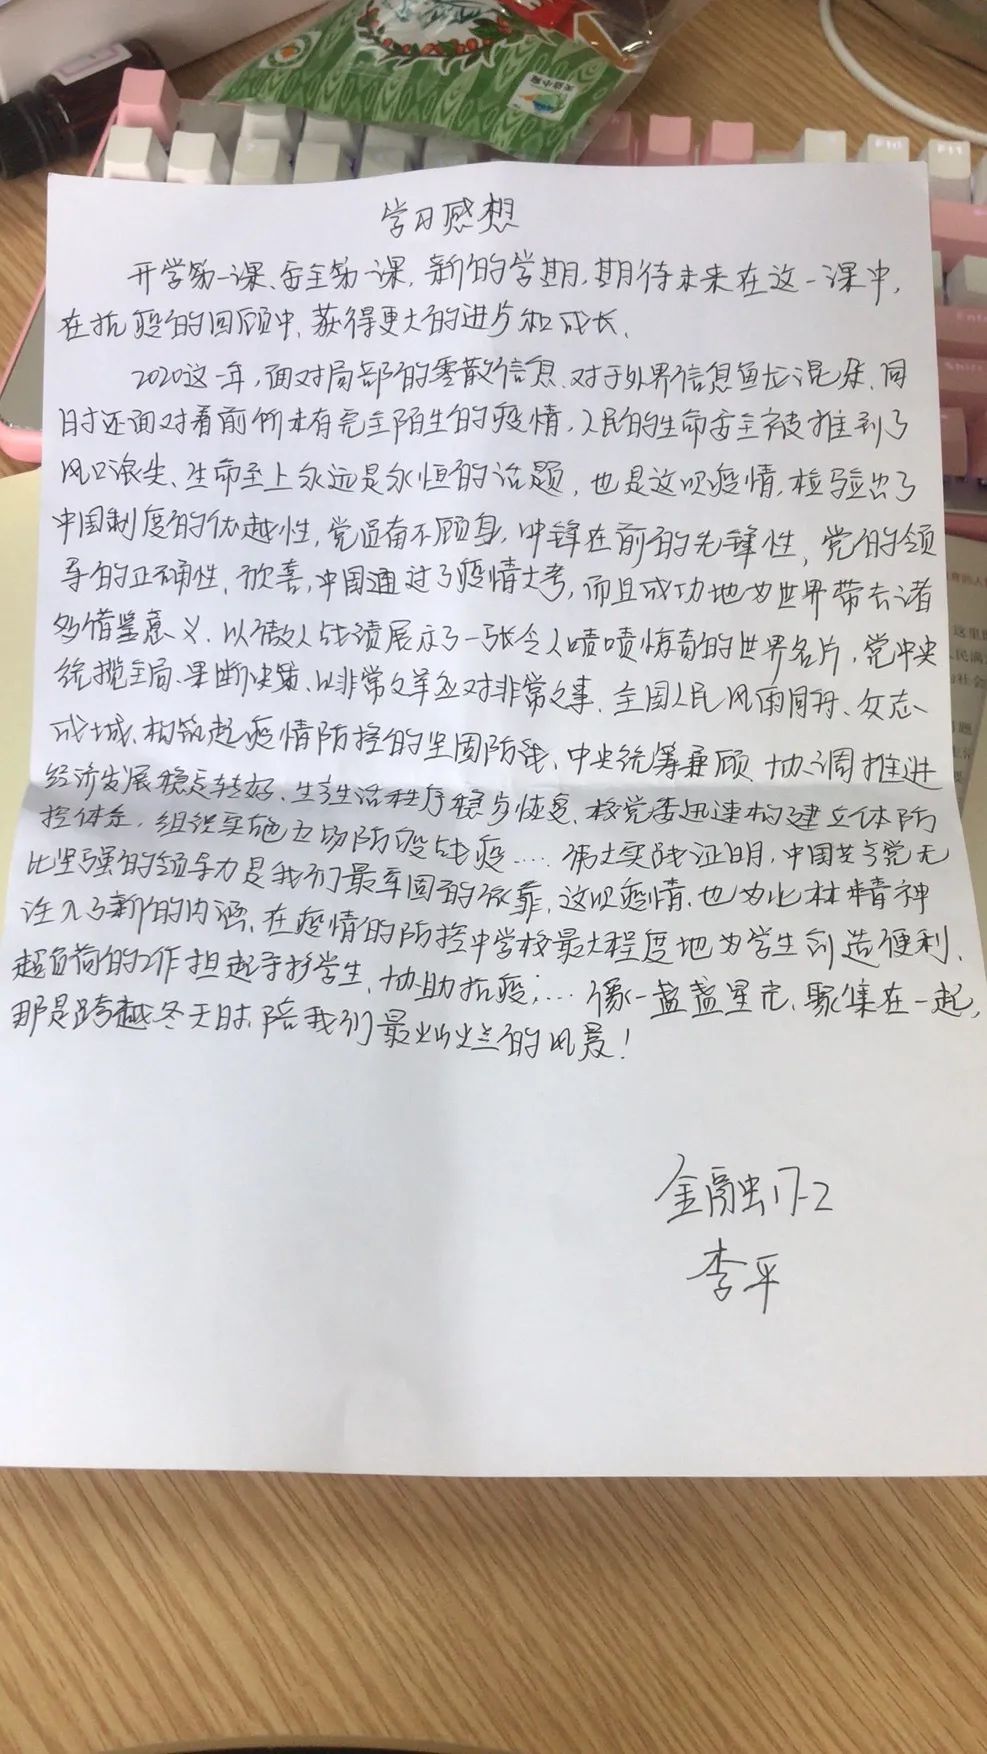 学习感想
开学第一课、安全第一课,新的学期,期待未来在这一课中,
在抗疫的回顾中、获得更大的进步和成长、
2020这一年,面对局部的零散信息、对于外界信息鱼龙混杂、同
时还面对着前所未有完全陌生的疫情,人民的生命安全被推到了
风口浪尖、生命至上永远是永恒的话题,也是这次疫情,检验出了
中国制度的优越性,党员奋不顾身,冲锋在前的先锋性,党的领
导的正确性、欣喜,中国通过了疫情大考,而且成功地为世界带去诸
多借鉴意义、以傲人战绩展示了一张令人啧啧惊奇的世界名片,党中央
统揽全局、果断决策、以非常之举应对非常之事、全国人民风雨同舟、众志
成城、构筑起疫情防控的坚固防线、中央统筹兼顾、协调推进
经济发展稳点转好、生产生活秩序稳步恢复、校党委迅速构建立体防
控体系,组织实施立场防疫战疫……伟大实践证明,中国共产党无
比坚强的领导力是我们最牢固的依靠、这次疫情、也为北林精神
注入了新的内涵、在疫情的防控中学校最大程度地为学生创造便利、
超负荷的工作担起手抄学生、协助抗疫;…像一盏盏星光、聚集在一起,
那是跨越冬天时、陪我们最灿烂的风景!
金融17-2
李平
F10
F11